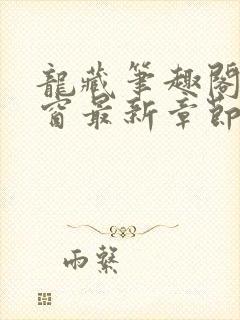 龍藏筆趣閣
窗最新章節
雨繫